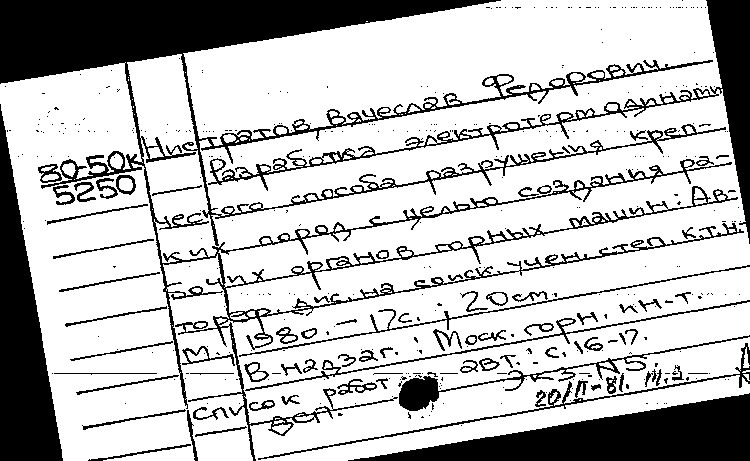 Нистратов, Вячеслав Федорович.
80-50к
5250
Разработка электротермодинами
ческого способа разрушения креп-
ких пород с целью создания ра-
бочих органов горных машин: Ав-
тореф. дис. на соиск. учен. степ. к.т.н.
М., 1980. - 17с. ; 20см.
В надзаг.: Моск. горн. ин-т.
Список работ авт.: с. 16-17.
ДСП. Экз. N5.
20/II-81.